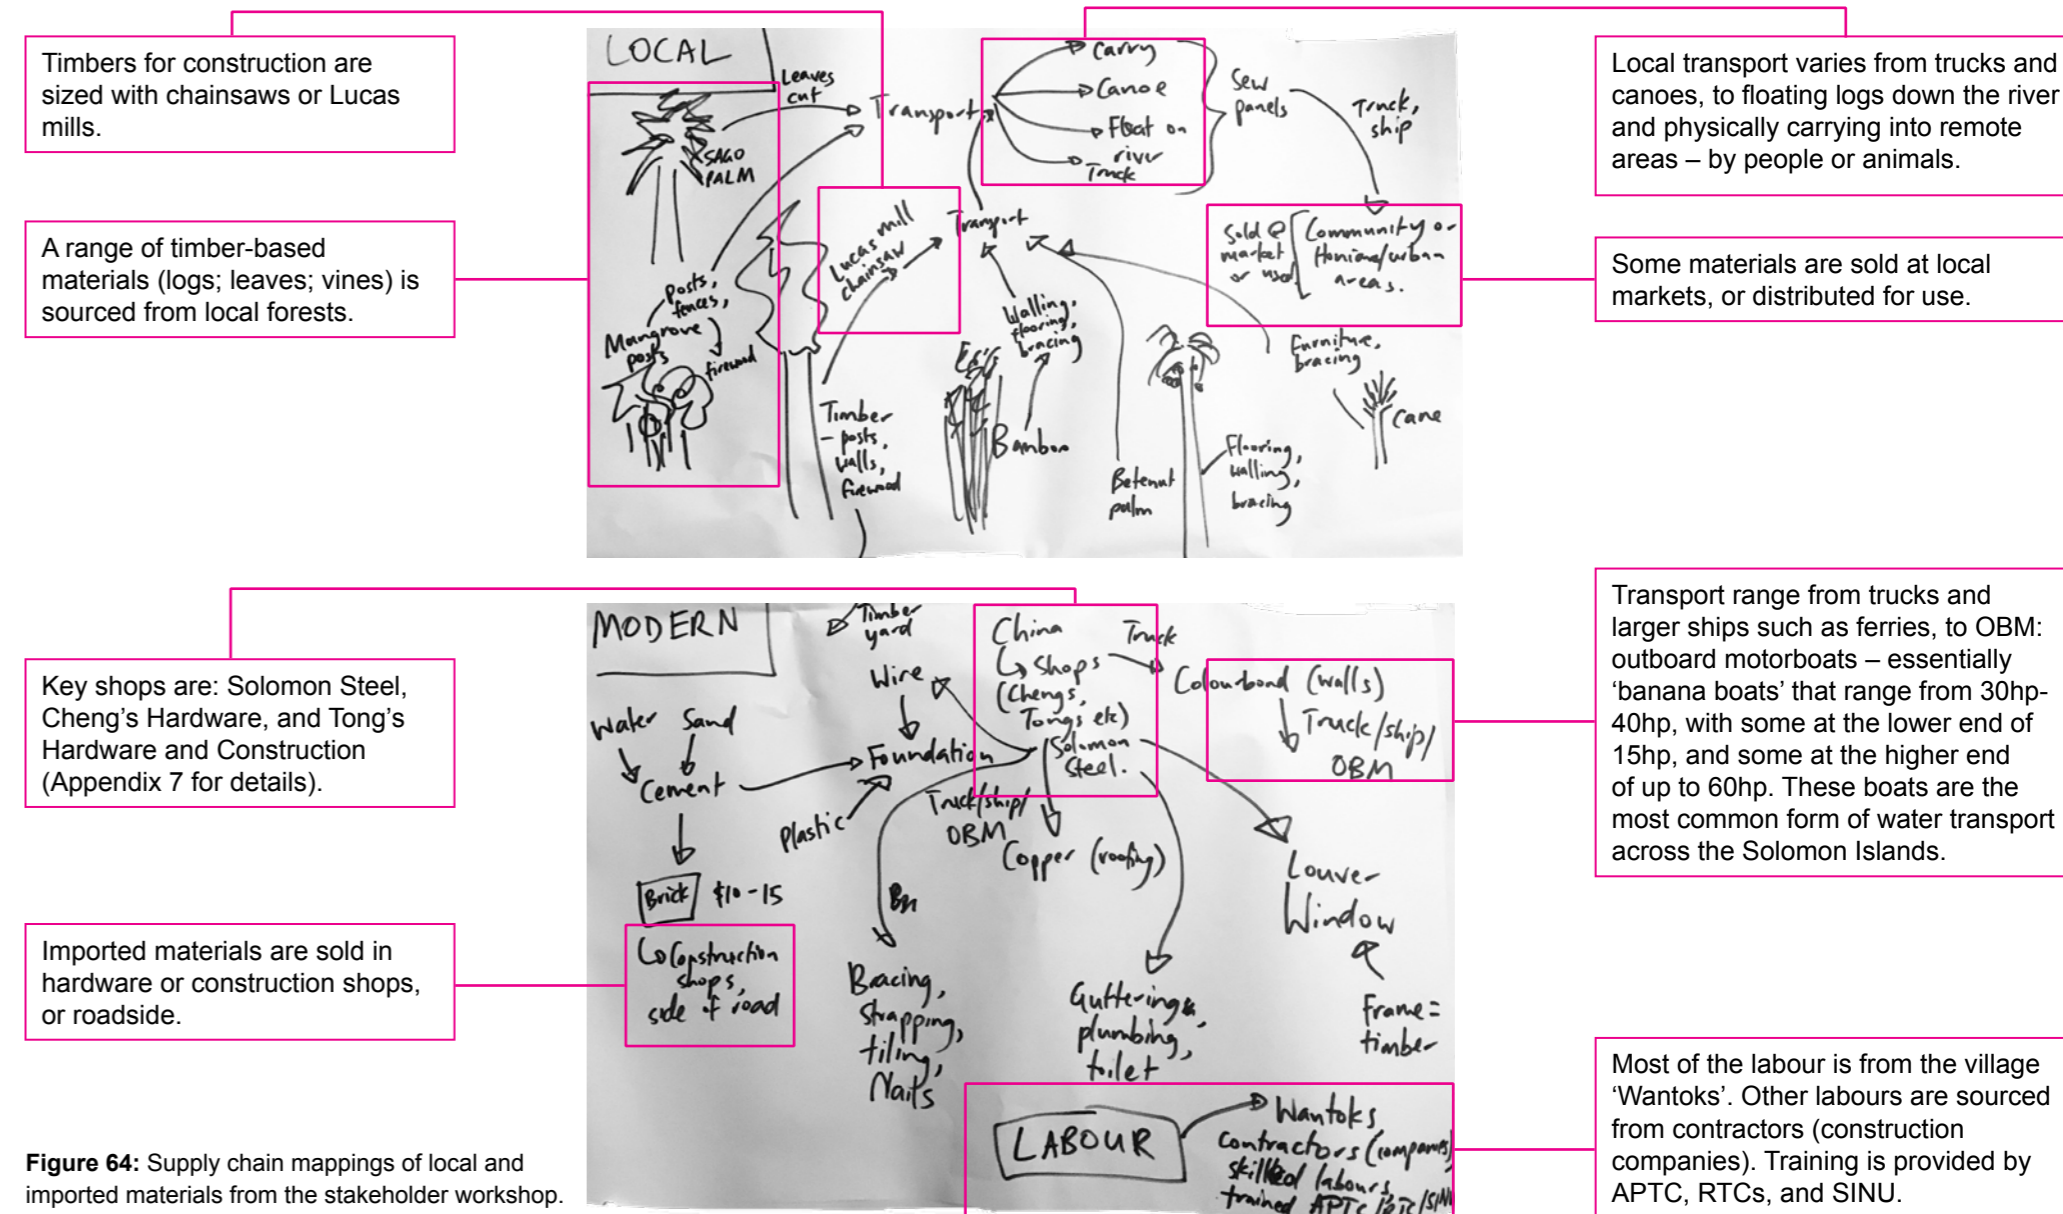 Timbers for construction are
sized with chainsaws or Lucas
mills.
A range of timber-based
materials (logs; leaves; vines) is
sourced from local forests.
LOCAL
Leaves
cut
SAGO
PALM
Transport
Carry
Canoe
Float on
river
Truck
Sew
panels
Truck,
ship
Sold @
market
or used
Community or
Honiara/urban
areas.
posts,
fences,
Mangrove
posts
firewood
Lucas mill
chainsaw
Transport
Timber
- posts,
walls,
firewood
Walling,
flooring,
bracing
Bamboo
Betenut
palm
Flooring,
walling,
bracing
Furniture,
bracing
Cane
Local transport varies from trucks and
canoes, to floating logs down the river
and physically carrying into remote
areas – by people or animals.
Some materials are sold at local
markets, or distributed for use.
Key shops are: Solomon Steel,
Cheng’s Hardware, and Tong’s
Hardware and Construction
(Appendix 7 for details).
Imported materials are sold in
hardware or construction shops,
or roadside.
MODERN
Timber
yard
Wire
Water Sand
Cement
Foundation
Plastic
Brick $10-15
Construction
shops,
side of road
China
Shops
(Chengs,
Tongs etc)
Solomon
Steel.
Truck
Colourbond (walls)
Truck/ship/
OBM
Truck/ship/
OBM
Copper (roofing)
Bracing,
strapping,
tiling,
Nails
Guttering,
plumbing,
toilet
Louver
Window
Frame =
timber
LABOUR
Wantoks
contractors (companies)
skilled labours,
trained APTC/RTC/SINU
Transport range from trucks and
larger ships such as ferries, to OBM:
outboard motorboats – essentially
‘banana boats’ that range from 30hp-
40hp, with some at the lower end of
15hp, and some at the higher end
of up to 60hp. These boats are the
most common form of water transport
across the Solomon Islands.
Most of the labour is from the village
‘Wantoks’. Other labours are sourced
from contractors (construction
companies). Training is provided by
APTC, RTCs, and SINU.
Figure 64: Supply chain mappings of local and
imported materials from the stakeholder workshop.